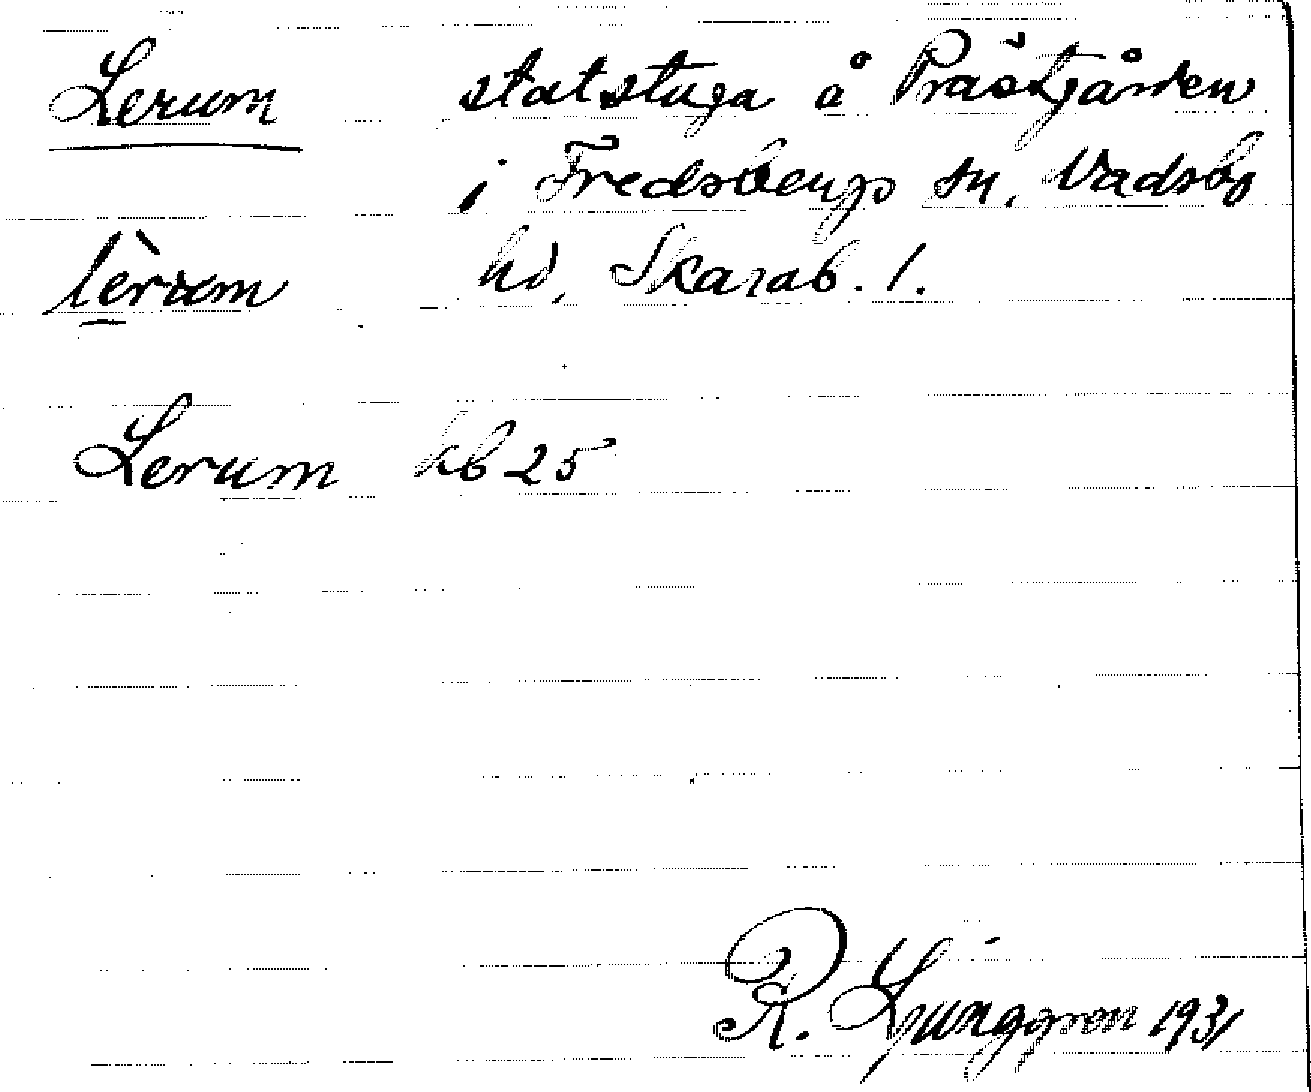 Lerum statstuga å Prästgården
i Fredsbergs sn, Vadsbo
lèrum hd, Skarab. l.
Lerum kb 25
R. Ljunggren 1931